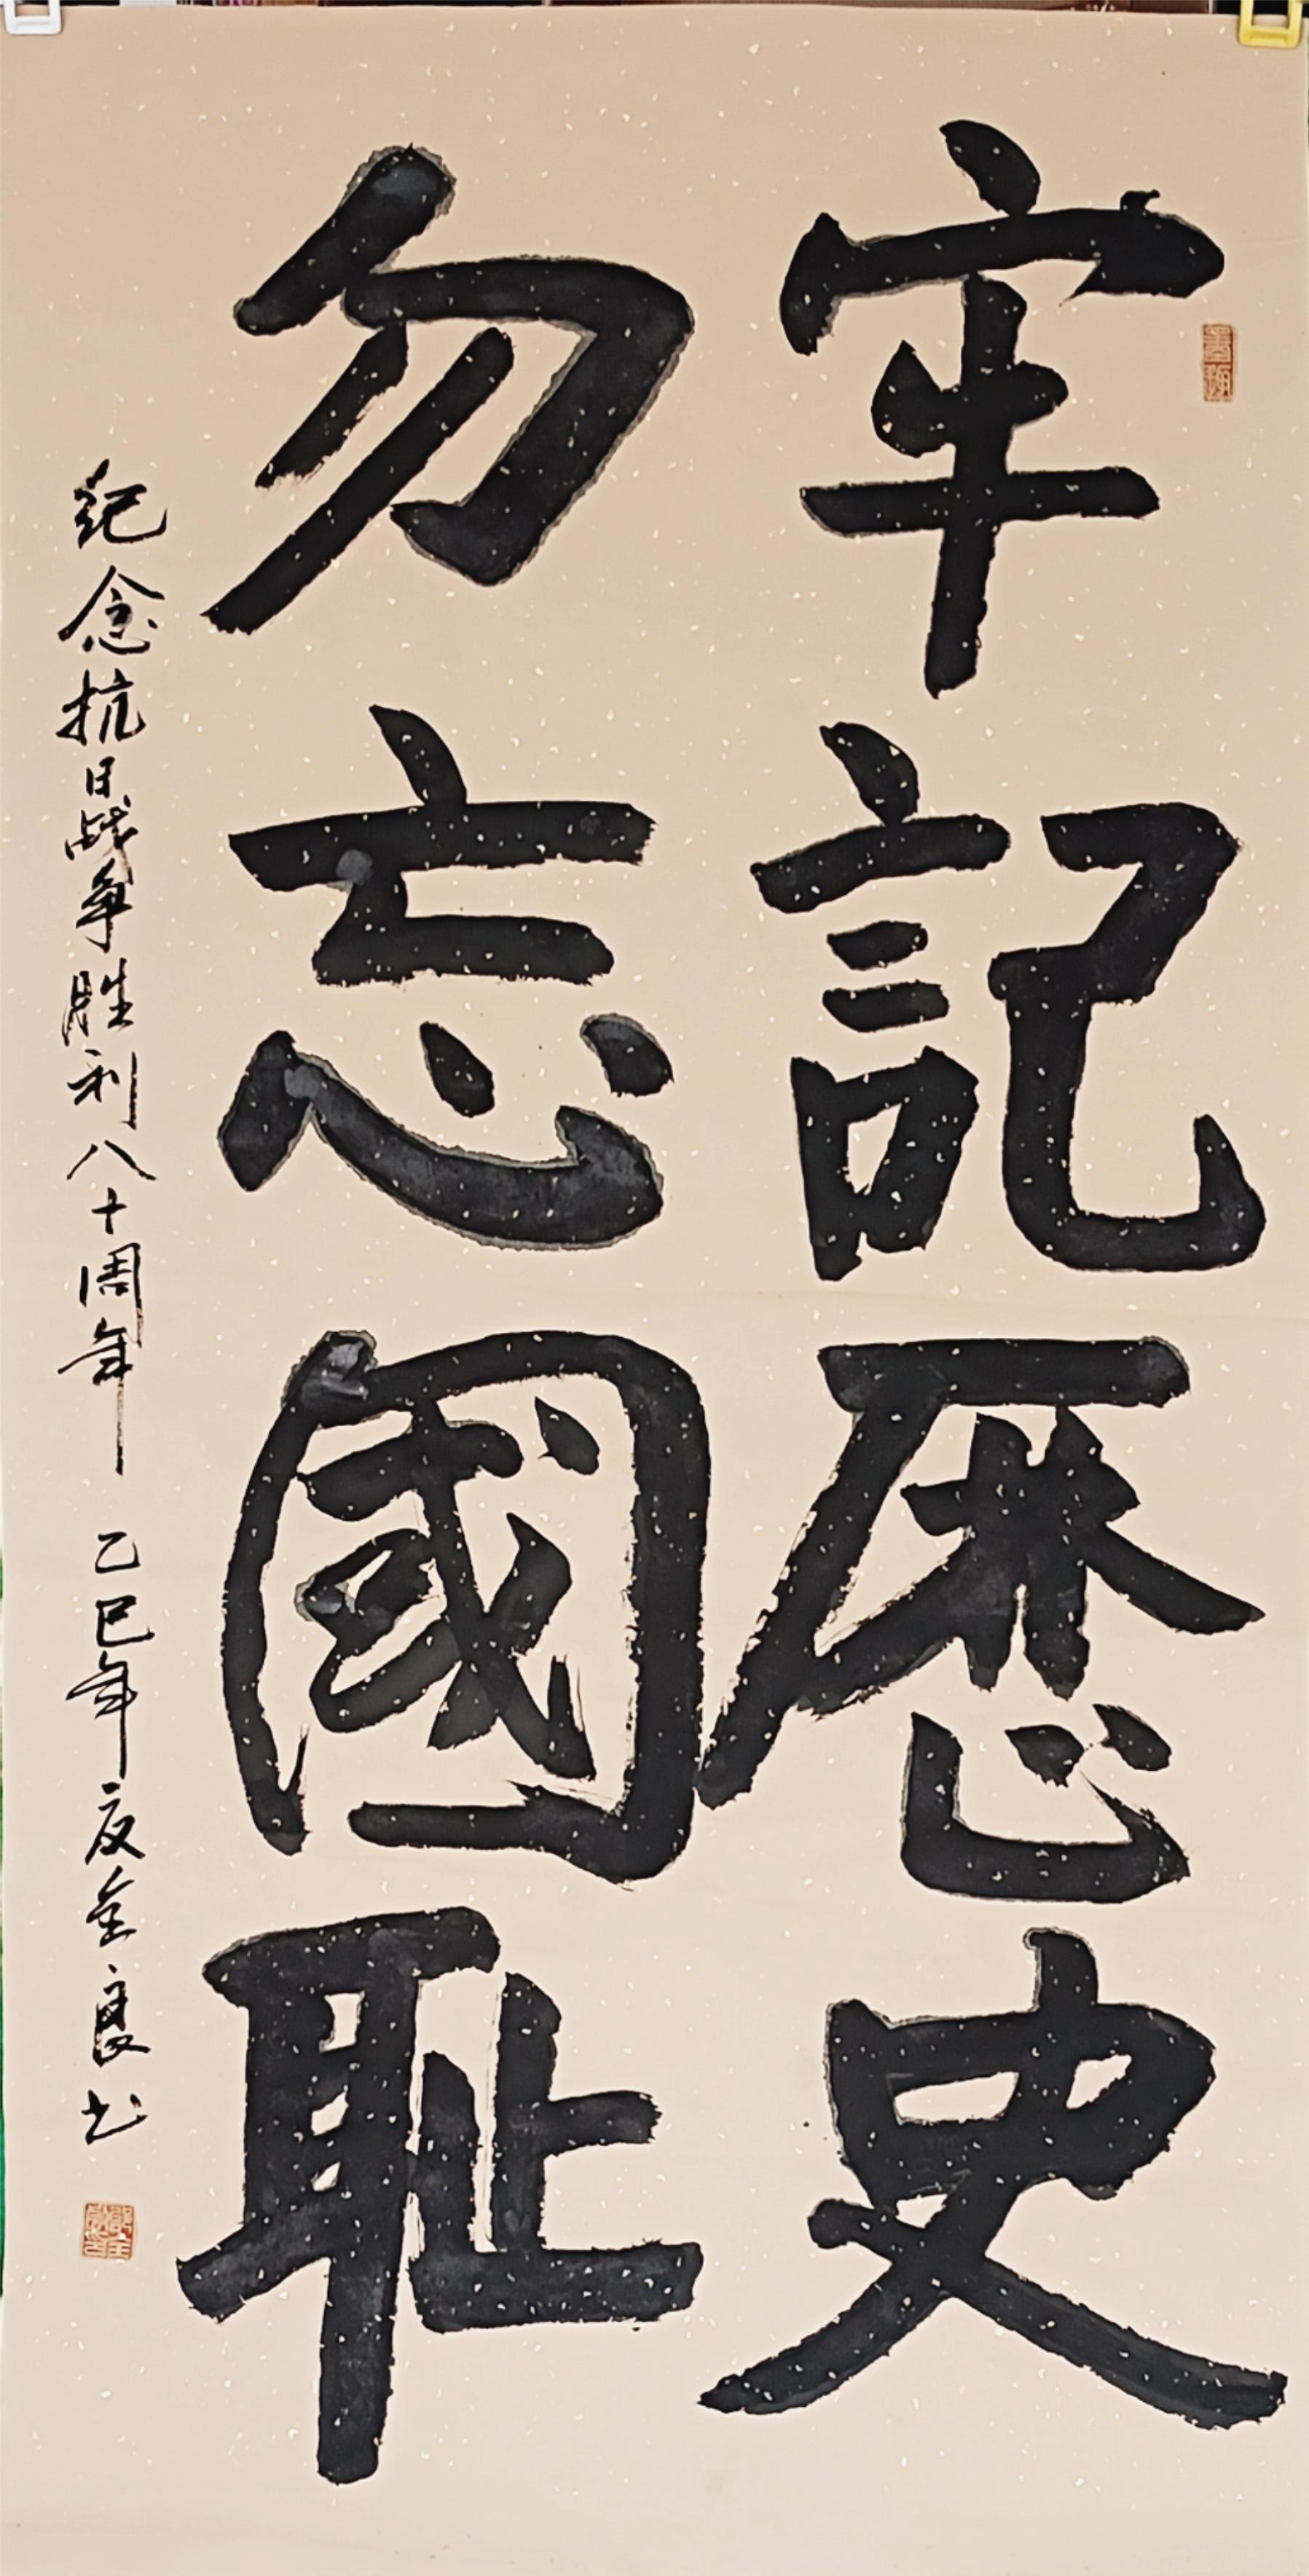 牢記歷史
勿忘國恥
纪念抗日战争胜利八十周年 乙巳年夏金良书